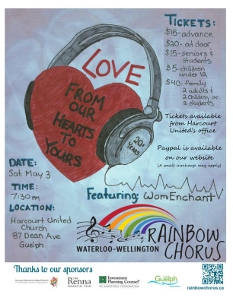 TICKETS:
$15-advance
$20-at door
$15-seniors & students
$5-children under 12
$40-family
2 adults &
2 children or
2 students
LOVE
FROM
OUR
HEARTS TO
YOURS
20+
YEARS
Tickets available
from Harcourt
United's office
Paypal is available
on our website
(A small surcharge may apply)
DATE:
Sat May 3
TIME:
7:30pm
LOCATION:
Harcourt United
Church
87 Dean Ave
Guelph
Featuring: WomEnchant
WATERLOO-WELLINGTON
RAINBOW
CHORUS
Thanks to our sponsors
Renna
Guelph
rainbowchorus.ca